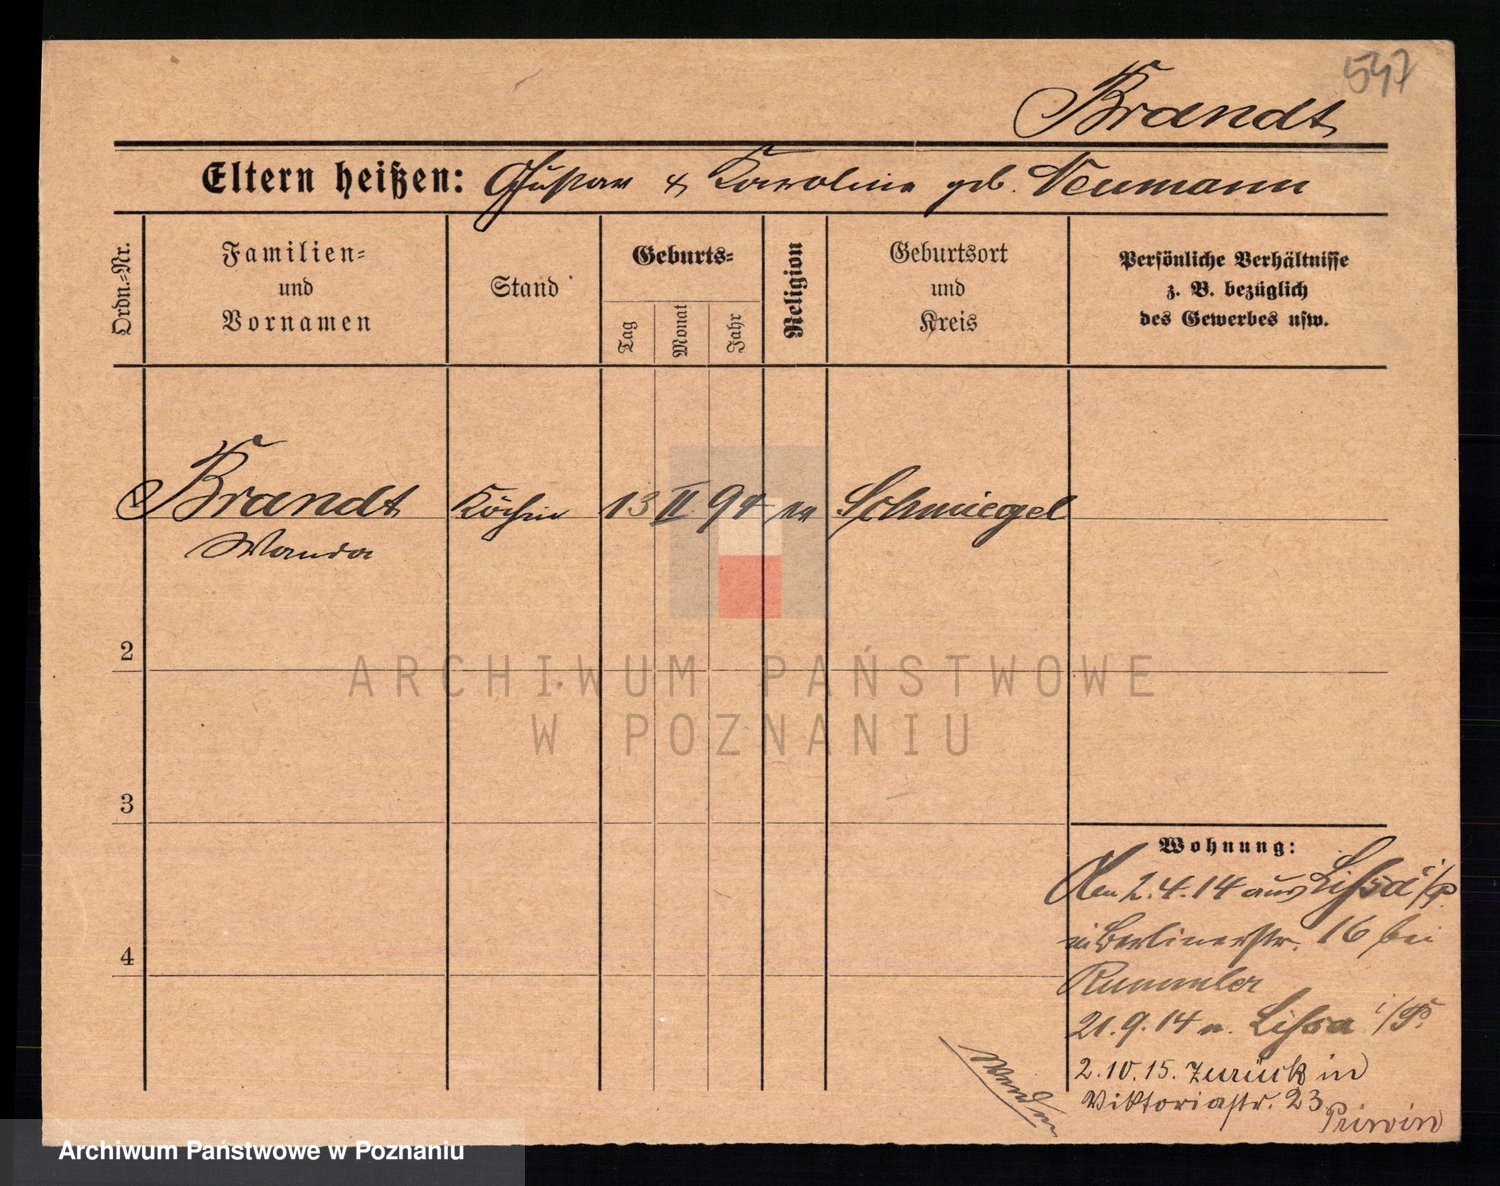 547
Brandt
Eltern heißen: Gustav & Karoline geb. Neumann
Ordn.-Nr.
Familien-
und
Vornamen
Stand
Geburts-
Tag
Monat
Jahr
Religion
Geburtsort
und
Kreis
Persönliche Verhältnisse
z. B. bezüglich
des Gewerbes usw.
Brandt Köchin 13 II 94 Schmiegel
Wanda
2
ARCHIWUM PAŃSTWOWE
W POZNANIU
3
Wohnung:
2.4.14 aus Lissa i/P
Berlinerstr. 16 bei
Rummler
4
21.9.14 n. Lissa i/P.
2.10.15. zurück in
Viktoriastr. 23
Wenden
Archiwum Państwowe w Poznaniu